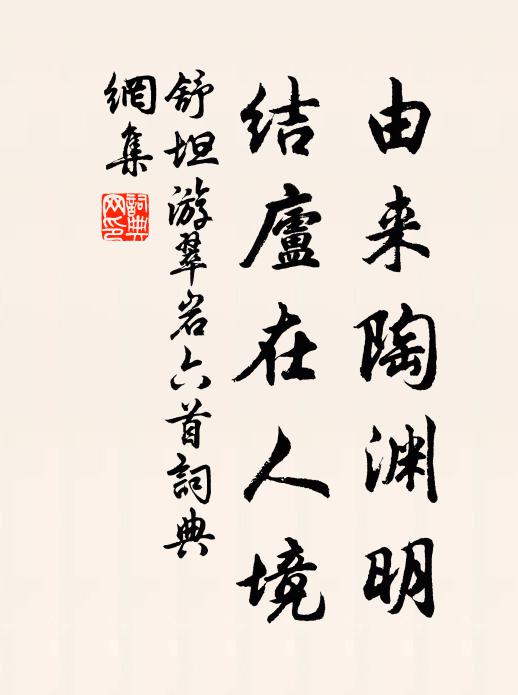 由来陶渊明
结廬在人境
舒坦游翠岩六首詞典
網集
詞典
网印